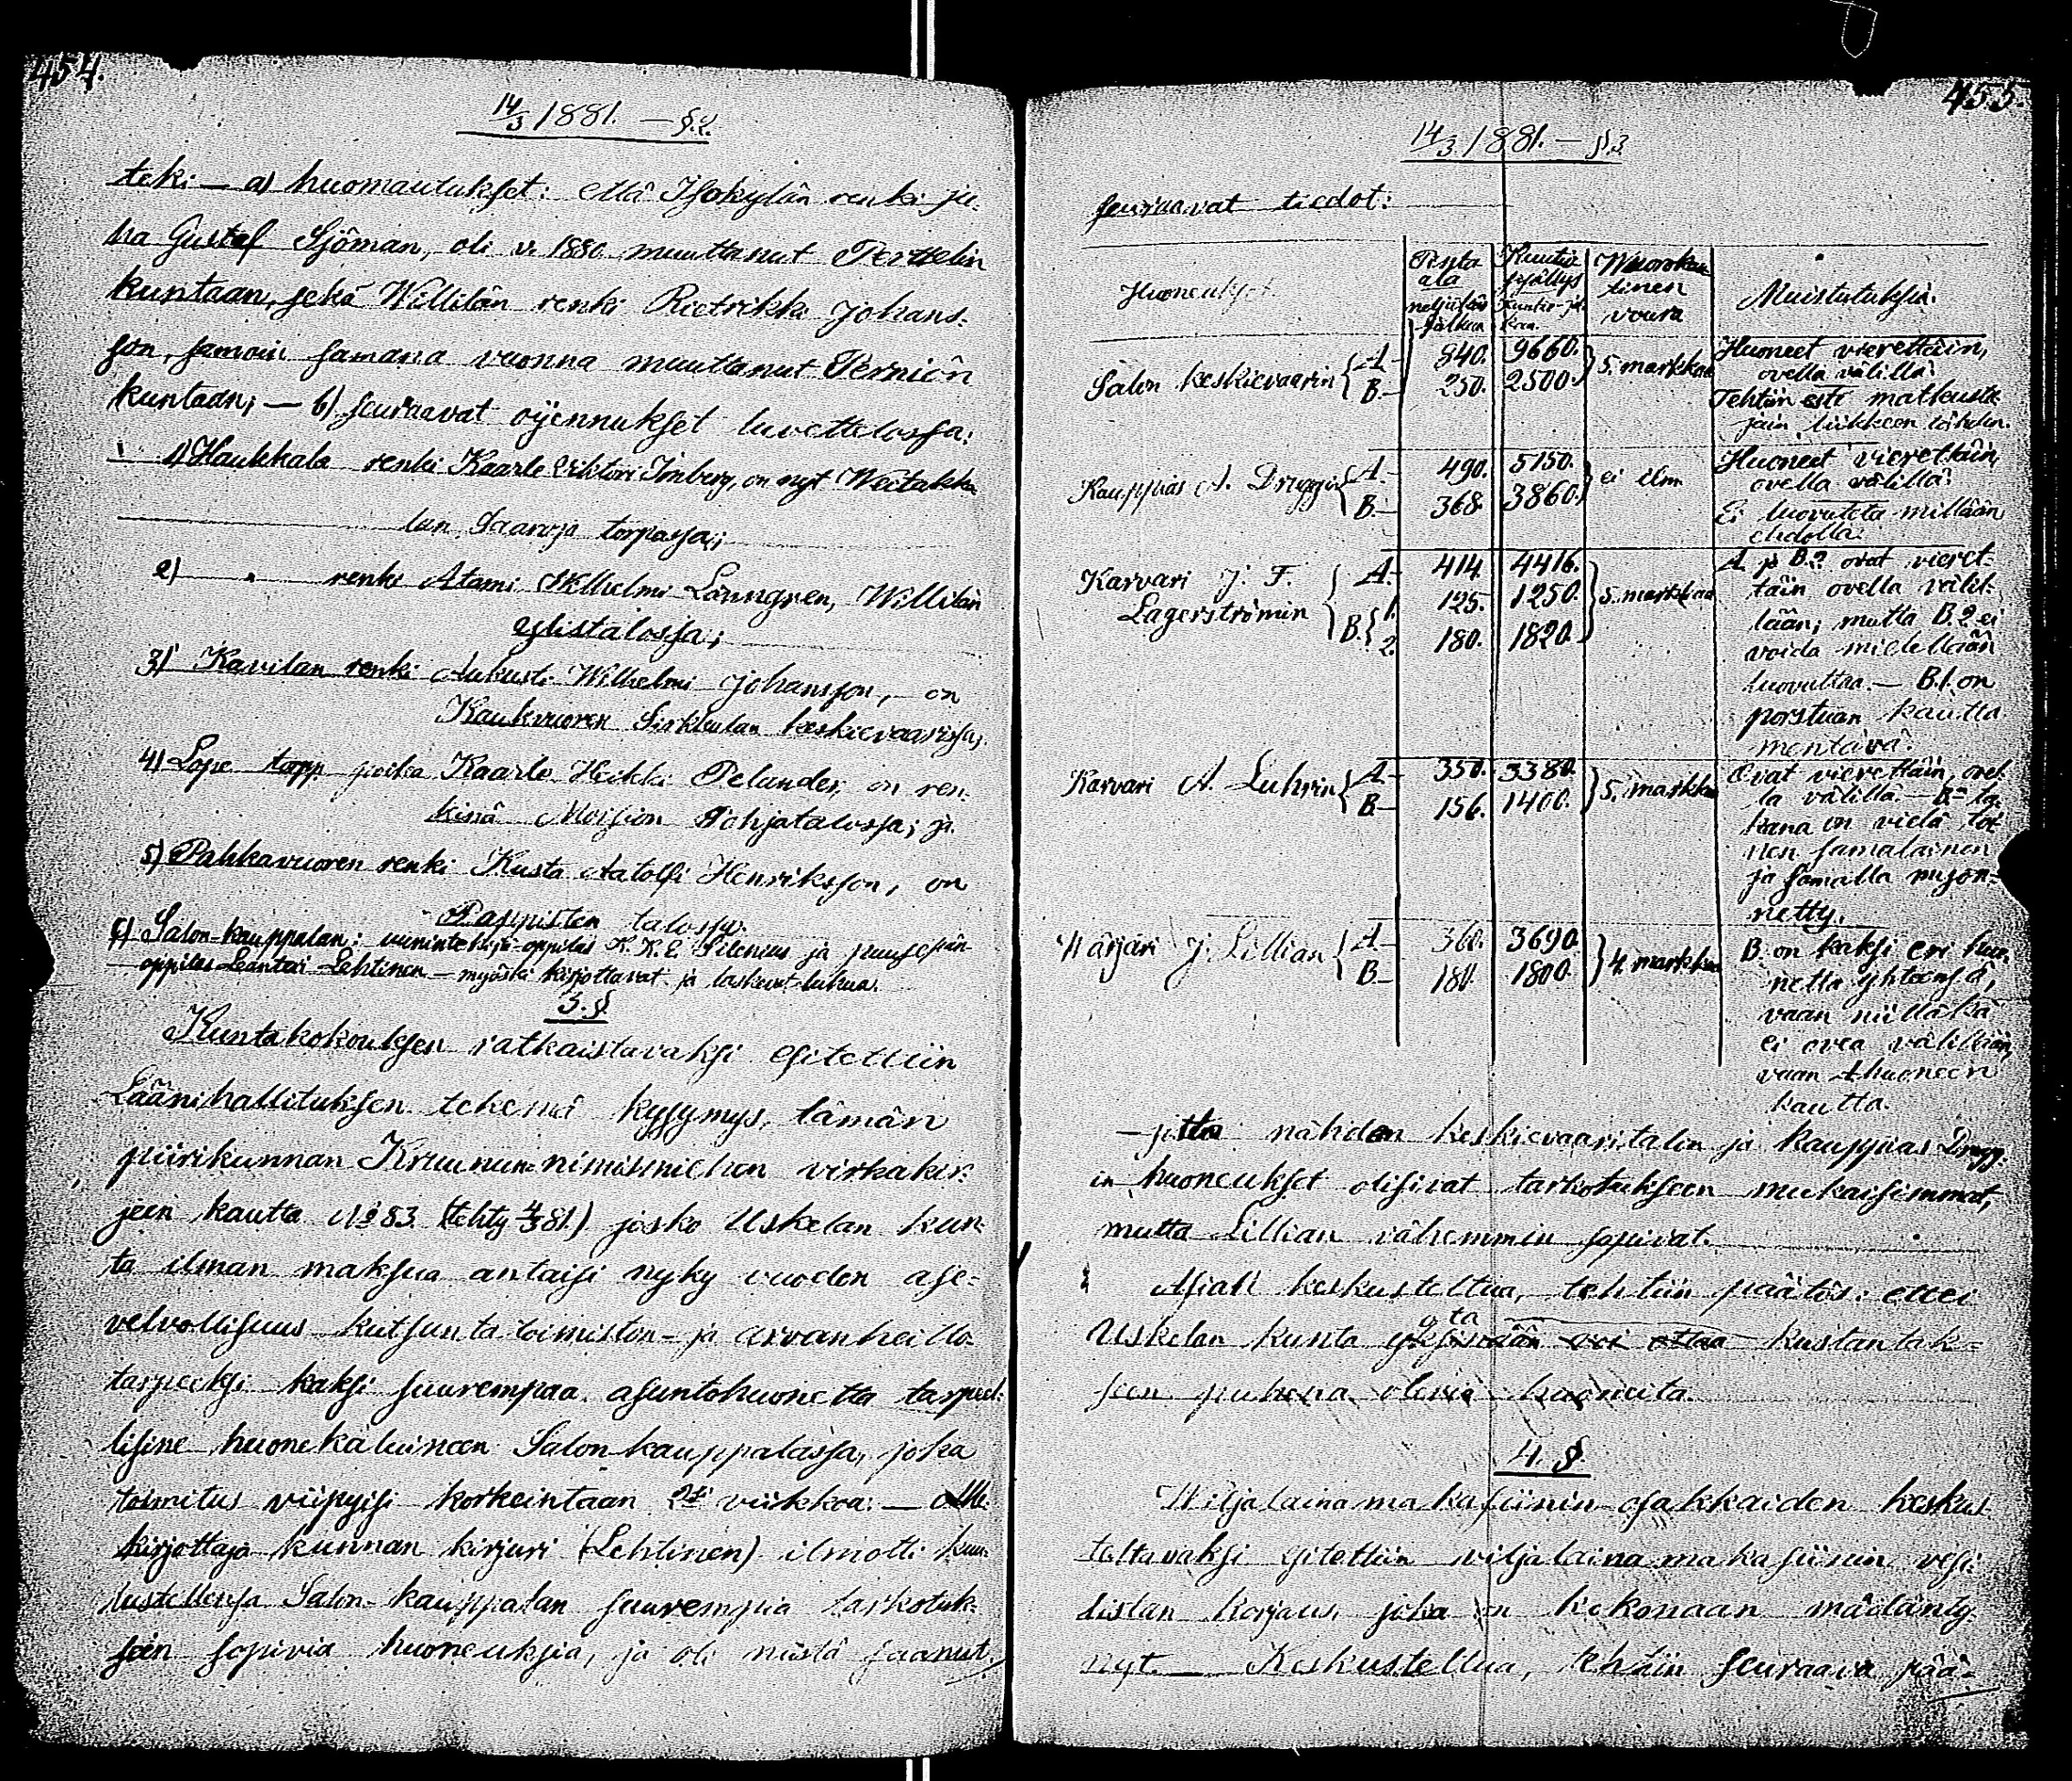 454.
14/3 1881. — §.2.
teki — a) huomautukset: että Isokylän renki ju-
ha Gustaf Sjöman, oli v. 1880 muuttanut Perttelin
kuntaan, sekä Willilän renki Rietrikki Johans-
son, samoin samana vuonna muuttanut Perniön
kuntaan; — b) seuraavat ojennukset luettelossa:
1) Haukkala renki Kaarle Viktori Imberg, on nyt
lan torpassa;
2) " renki Atami Wilhelmi Lönngren, Willilän
ylistalossa;
3) Kavilan renki Aukusti Wilhelmi Johansson, on
Kaukvuoren Sirkkulan keskievaarissa;
4) Lope torpp poika Kaarle Heikki Pelander, on ren-
kinä Moision Pohjatalossa; ja
5) Pahkavuoren renki Kusta Aatolfi Henriksson, on
talossa.
c) Salon-kauppalan: oppilas K. K. E. Silenius ja puusepän-
oppilas Leantari Lehtinen — myöski kirjottavat ja laskevat lukua.
3. §
Kuntakokouksen ratkaistavaksi esitettiin
Läänihallituksen tekemä kysymys, tämän
piirikunnan Kruununnimismiehen virkakir-
jein kautta No 83 (tehty 4/3 81.) josko Uskelan kun-
ta ilman maksua antaisi nyky vuoden ase-
velvollisuus kutsunta toimiston- ja arvanheitto-
tarpeeksi kaksi suurempaa asuntohuonetta tarpeel-
lisine huonekaluineen Salon kauppalassa, joka
toimitus viipyisi korkeintaan 2si viikkoa: — Alle-
kirjottaja kunnan kirjuri (Lehtinen) ilmotti kuu-
lustelleensa Salon-kauppalan suurempia tarkotuk-
seen sopivia huoneuksia, ja oli niistä saanut
455.
14/3 1881. — §.3
seuraavat tiedot:
Huoneukset. Pinta ala neljäkös jalkaa Kuutio sisällys Kuutio-jal- kaa. Wuorokau tinen vuura Muistutuksia.
Salon keskievaarin { A- 940. 9660. } 5 markkaa Huoneet vierettäin,
B- 250. 2500. ovella välillä.
Tehtiin esti matkusta-
jain liikkeen tähden.
Kauppias A. Druggin { A- 490. 5150. } ei ilm Huoneet vierettäin,
B- 368. 3860. ovella välillä.
Ei luovuteta millään
ehdolla.
Karvari J. F. { A- 414. 4416. } 5 markkaa A ja B.2 ovat vieret-
Lagerströmin B. { 1. 125. 1250. täin ovella välil-
2. 180. 1820. lään; mutta B.2 ei
voida mielellään
luovuttaa. — B.1. on
porstuan kautta
mentävä.
Karvari A. Luhrin { A- 350. 3380. } 5. markkaa Ovat vierettäin, ovel-
B- 156. 1400. la välillä. — B= ta-
kana on vielä toi-
nen samalainen
ja samalla
netty.
Wärjäri J. Lillian { A- 360. 3690. } 4. markkaa B. on kaksi eri huo-
B- 180. 1800. netta yhteensä,
vaan niilläkä
ei ovea välillään,
vaan A huoneen
kautta.
— jotta nähden keskievaaritalon ja kauppias Drugg-
in huoneukset olisivat tarkotukseen mukaisimmat,
mutta Lillian vähemmin sopivat.
Asiati keskusteltua, tehtiin päätös: ettei
Uskelan kunta ota kustantak-
seen puheena olevia huoneita.
4. §.
Wiljalainamakasiinin osakkaiden keskus-
teltavaksi esitettiin viljalainamakasiinin vesi-
listan korjaus, joka on kokonaan mädänty-
nyt. — Keskusteltua, tehtiin seuraava pää-